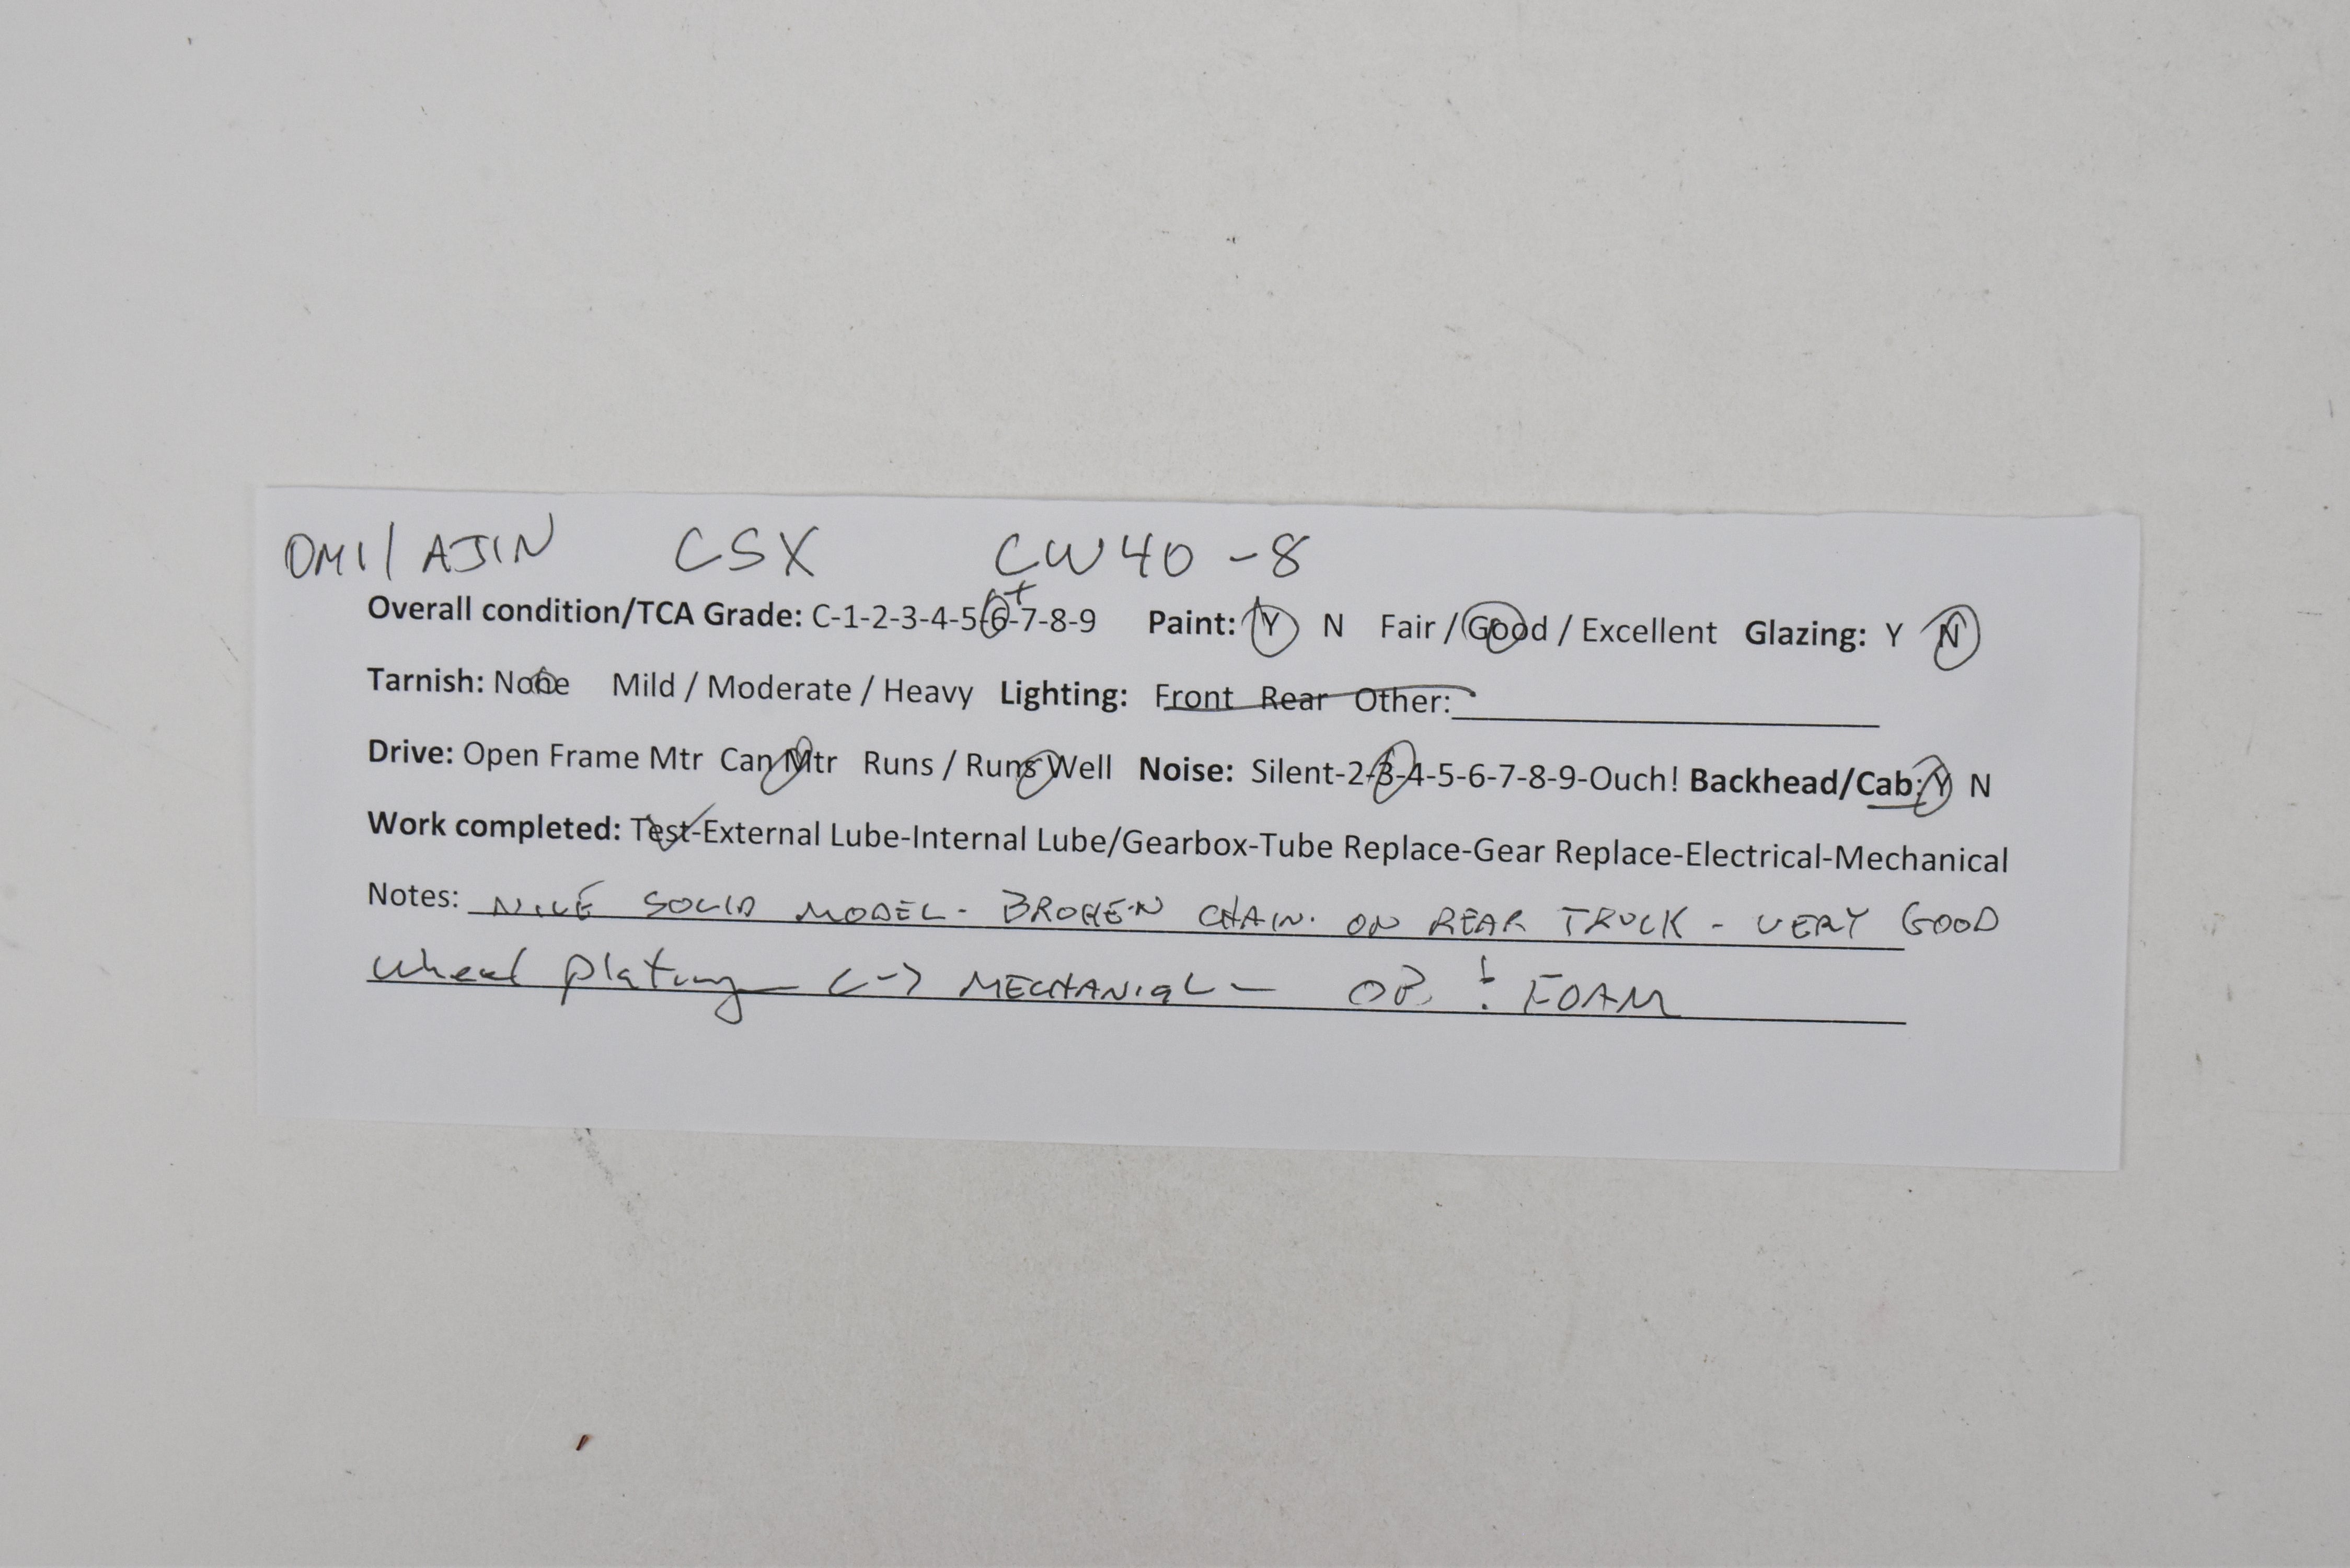 OMI/AJIN CSX CW40-8
Overall condition/TCA Grade: C-1-2-3-4-5-6+-7-8-9 Paint: Y N Fair / Good / Excellent Glazing: Y N
Tarnish: None Mild / Moderate / Heavy Lighting: Front Rear Other:
Drive: Open Frame Mtr Can Mtr Runs / Runs Well Noise: Silent-2-3-4-5-6-7-8-9-Ouch! Backhead/Cab: Y N
Work completed: Test-External Lube-Internal Lube/Gearbox-Tube Replace-Gear Replace-Electrical-Mechanical
Notes: NICE SOLID MODEL - BROKEN CHAIN ON REAR TRUCK - VERY GOOD
wheel plating <-> MECHANICAL - OB ! FOAM